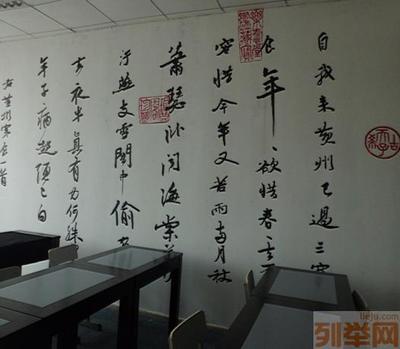 自我来黄州已過三寒
食年〻欲惜春〻去
容惜今年又苦雨兩月秋
蕭瑟卧聞海棠花
汙燕支雪闇中偷
去夜半真有力何殊
年子病起頭已白
右黄州寒食二首
lieju.com
列举网